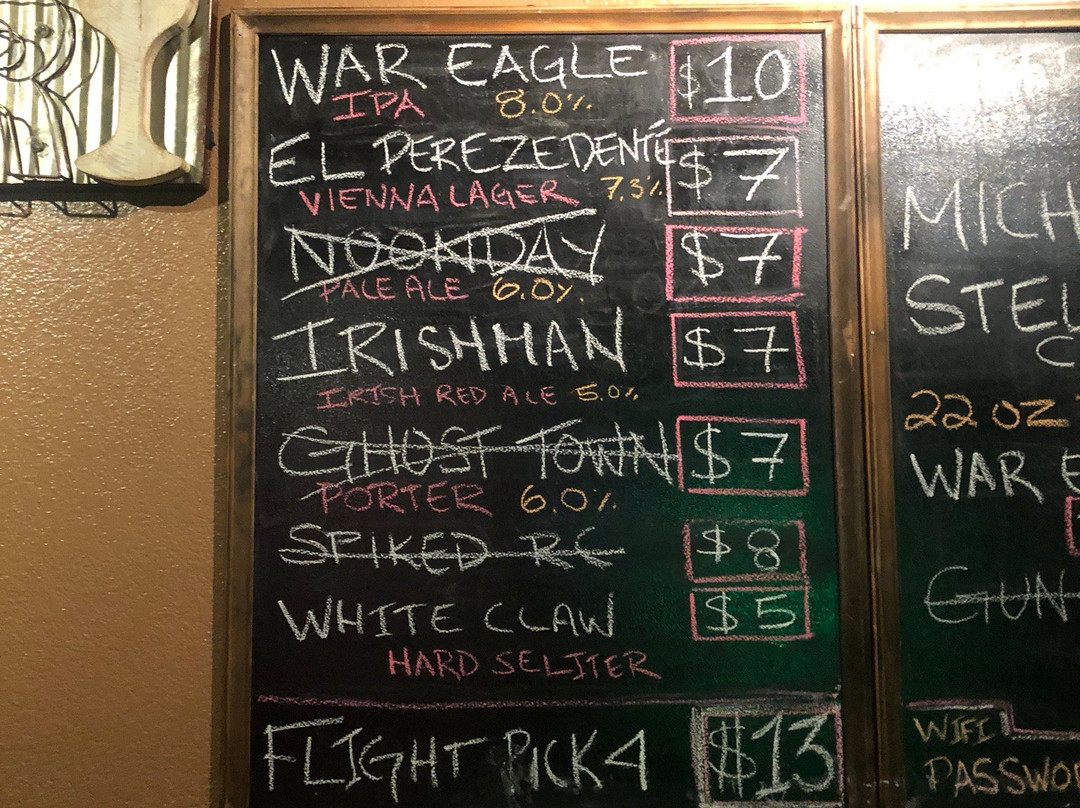 WAR EAGLE $10
IPA 8.0%
EL PEREZEDENTE $7
VIENNA LAGER 7.3%
NOONDAY $7
PALE ALE 6.0%
IRISHMAN $7
IRISH RED ALE 5.0%
GHOST TOWN $7
PORTER 6.0%
SPIKED RC $8
WHITE CLAW $5
HARD SELTTER
FLIGHT PICK 4 $13
MICH
STEL
C
22 OZ
WAR E
GUN
WIFI
PASSWO